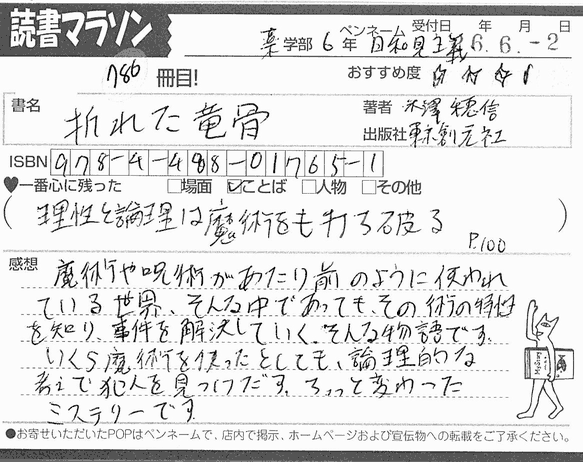 読書マラソン
786 冊目!
薬学部 6年 ペンネーム 日和見主義 受付日 年 月 日 6.6.-2
おすすめ度
書名 折れた竜骨
著者 米澤穂信
出版社 東京創元社
ISBN 978-4-488-01765-1
♥一番心に残った □場面 ☑ことば □人物 □その他
(理性と論理は魔術をも打ち破る P.100)
感想
魔術や呪術があたり前のように使われ
ている世界、そんな中であっても、その術の特性
を知り、事件を解決していく、そんな物語です。
いくら魔術を使ったとしても、論理的な
考えで犯人を見つけだす、ちょっと変わった
ミステリーです
●お寄せいただいたPOPはペンネームで、店内で掲示、ホームページおよび宣伝物への転載をご了承ください。